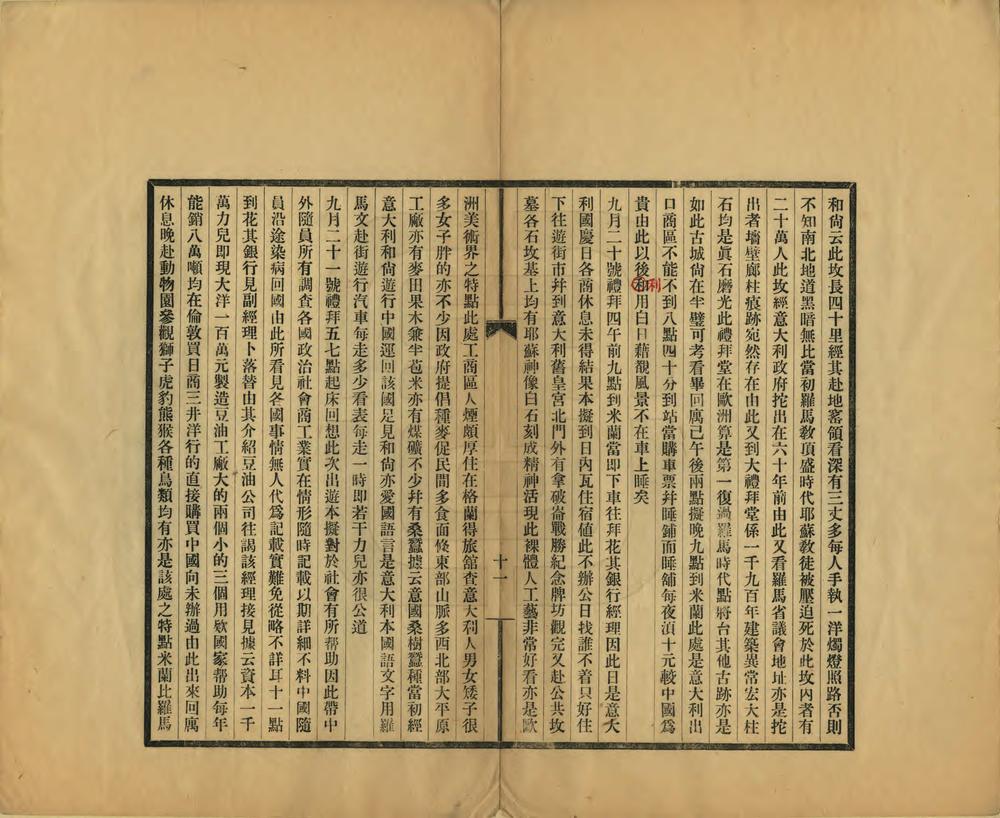 和尙云此坟長四十里經其赴地窰領看深有三丈多每人手執一洋燭燈照路否則
不知南北地道黑暗無比當初羅馬敎頂盛時代耶蘇敎徒被壓迫死於此坟內者有
二十萬人此坟經意大利政府挖出在六十年前由此又看羅馬省議會地址亦是挖
出者墻壁廊柱痕跡宛然存在由此又到大禮拜堂係一千九百年建築異常宏大柱
石均是眞石磨光此禮拜堂在歐洲算是第一復過羅馬時代點將台其他古跡亦是
如此古城尙在半璧可考看畢回寓已午後兩點擬晚九點到米蘭此處是意大利出
口商區不能不到八點四十分到站當購車票幷睡鋪而睡舖每夜湏十元較中國爲
貴由此以後和利用白日藉覩風景不在車上睡矣
九月二十號禮拜四午前九點到米蘭當即下車往拜花其銀行經理因此日是意大
利國慶日各商休息未得結果本擬到日內瓦住宿値此不辦公日找誰不着只好住
下往遊街市幷到意大利舊皇宮北門外有拿破崙戰勝紀念牌坊觀完又赴公共坟
墓各石坟基上均有耶蘇神像白石刻成精神活現此裸體人工藝非常好看亦是歐
十一
洲美術界之特點此處工商區人煙頗厚住在格蘭得旅舘查意大利人男女矮子很
多女子胖的亦不少因政府提倡種麥促民間多食面條東部山脈多西北部大平原
工廠亦有麥田果木兼半苞米亦有煤礦不少幷有桑蠶據云意國桑樹蠶種當初經
意大利和尙遊行中國運回該國足見和尙亦愛國語言是意大利本國語文字用羅
馬文赴街遊行汽車每走多少看表每走一時即若干力兒亦很公道
九月二十一號禮拜五七點起床回想此次出遊本擬對於社會有所帮助因此帶中
外隨員所有調查各國政治社會商工業實在情形隨時記載以期詳細不料中國隨
員沿途染病回國由此所看見各國事情無人代爲記載實難免從略不詳耳十一點
到花其銀行見副經理卜落替由其介紹豆油公司往謁該經理接見據云資本一千
萬力兒即現大洋一百萬元製造豆油工廠大的兩個小的三個用欵國家帮助每年
能銷八萬噸均在倫敦買日商三井洋行的直接購買中國向未辦過由此出來回寓
休息晚赴動物園參觀獅子虎豹熊猴各種鳥類均有亦是該處之特點米蘭比羅馬